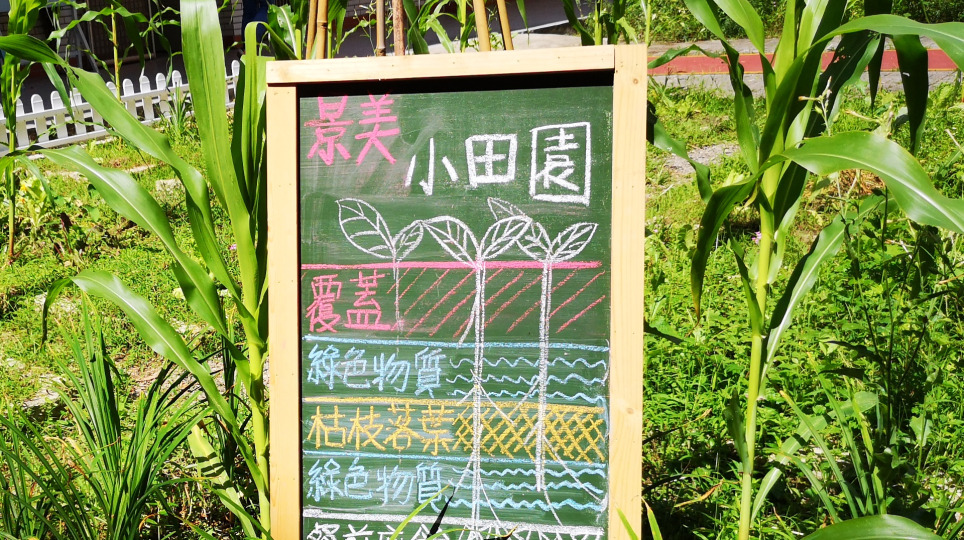 景美
小田園
覆蓋
綠色物質
枯枝落葉
綠色物質